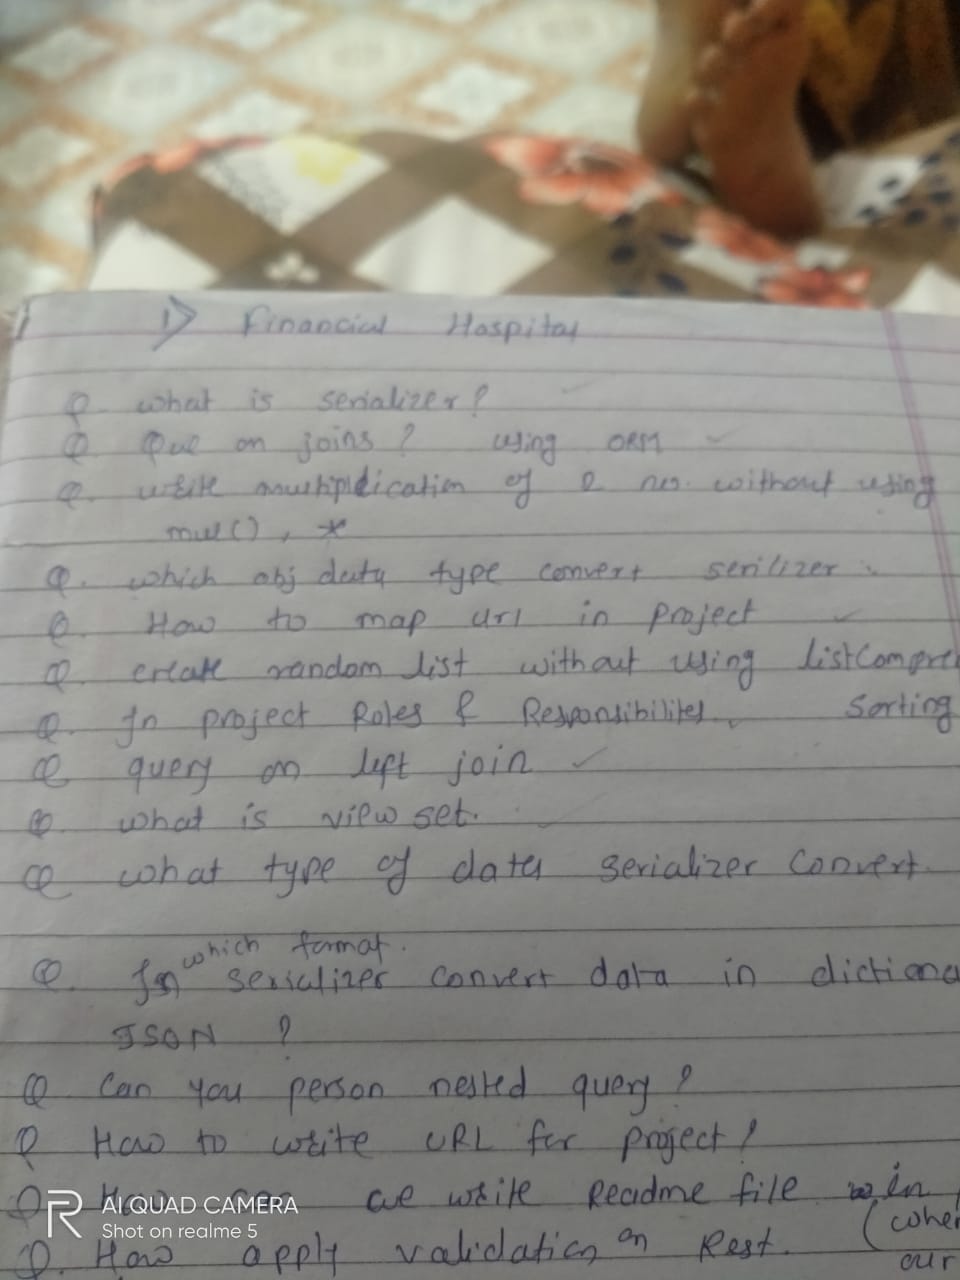 1) Financial Hospital
Q. what is serializer?
Q Que on joins? using ORM
Q. write multiplication of 2 no. without using
mul(), *
Q. which obj data type convert serilizer
Q. How to map url in project
Q. create random list without using listCompre
Q. In project Roles & Responsibilites. Sorting
Q query on left join
Q. what is view set.
Q what type of data serializer convert.
which format.
Q. In serializer convert data in dictiona
JSON ?
Q Can you person nested query?
Q How to write URL for project?
Q. How can we write Readme file in
(when
Q. How apply validation on Rest.
our
AI QUAD CAMERA
Shot on realme 5